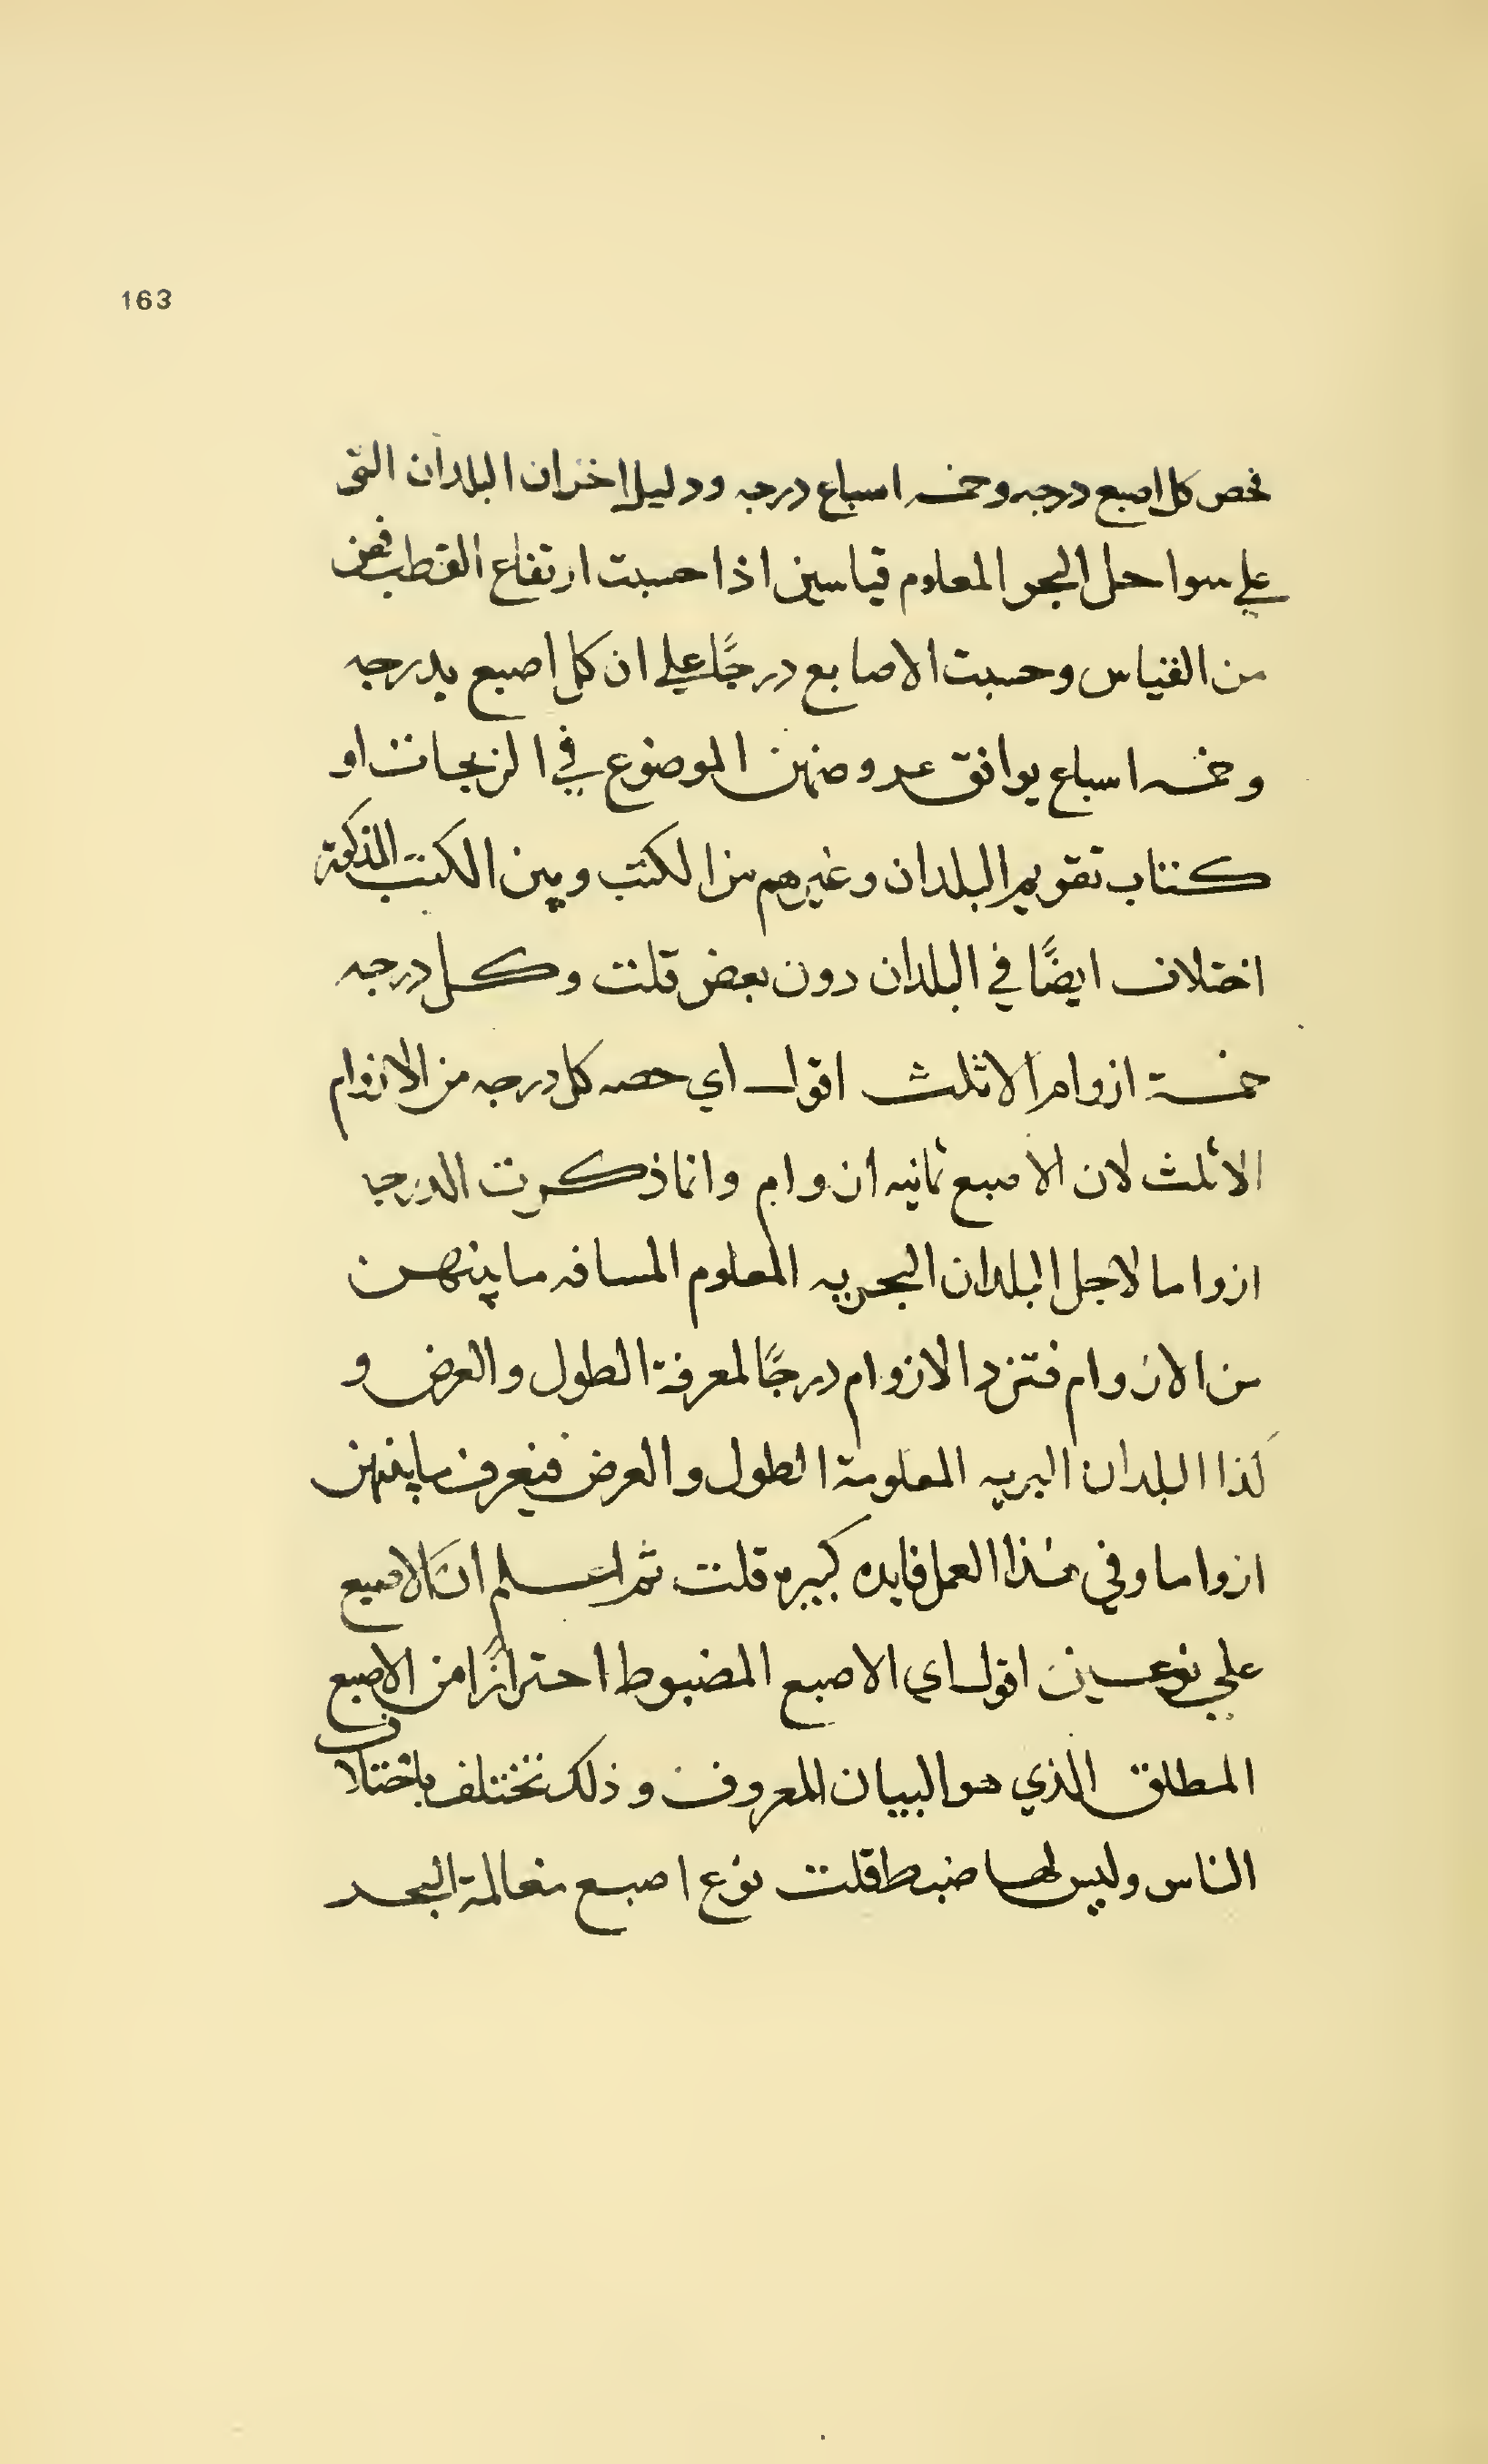 163
نخص كل اصبع درجه وخمسه اسباع درجه ودليل اخر ان البلدان التي
علي سواحل البحر المعلوم قياسهن اذا حسبت ارتفاع القطب فهن
من القياس وحسبت الاصابع درجًا علي ان كل اصبع بدرجه
وخمسه اسباع يوافق عروضهن الموضوع في الزيجات او
كتاب تقويم البلدان وغيرهم من الكتب وبين الكتب المذكورة
اختلاف ايضًا في البلدان دون بعض قلت وكل درجه
خمسة ازوام الا ثلث اقول اي حصه كل درجه من الازوام
الا ثلث لان الاصبع ثمانيه ازوام وانما ذكرت الدرجا
ازواما لاجل البلدان البحريه المعلوم المسافه ما بينهن
من الازوام فترد الازوام درجًا لمعرفة الطول والعرض و
لذا البلدان البريه المعلومة الطول والعرض فيعرف ما بينهن
ازواما وفي هذا العمل فايده كبيره قلت ثم اعلم ان الاصبع
علي نوعين اقول اي الاصبع المضبوط احترازًا من الاصبع
المطلق الذي هو البيان المعروف وذلك تختلف باختلاف
الناس وليس لها ضبط قلت نوع اصبع معالمة البحر